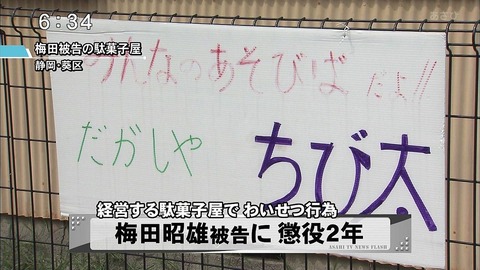 6:34
梅田被告の駄菓子屋
静岡・葵区
みんなのあそびば だよ!!
だがしや
ちび太
経営する駄菓子屋で わいせつ行為
梅田昭雄被告に 懲役2年
ASAHI TV NEWS FLASH